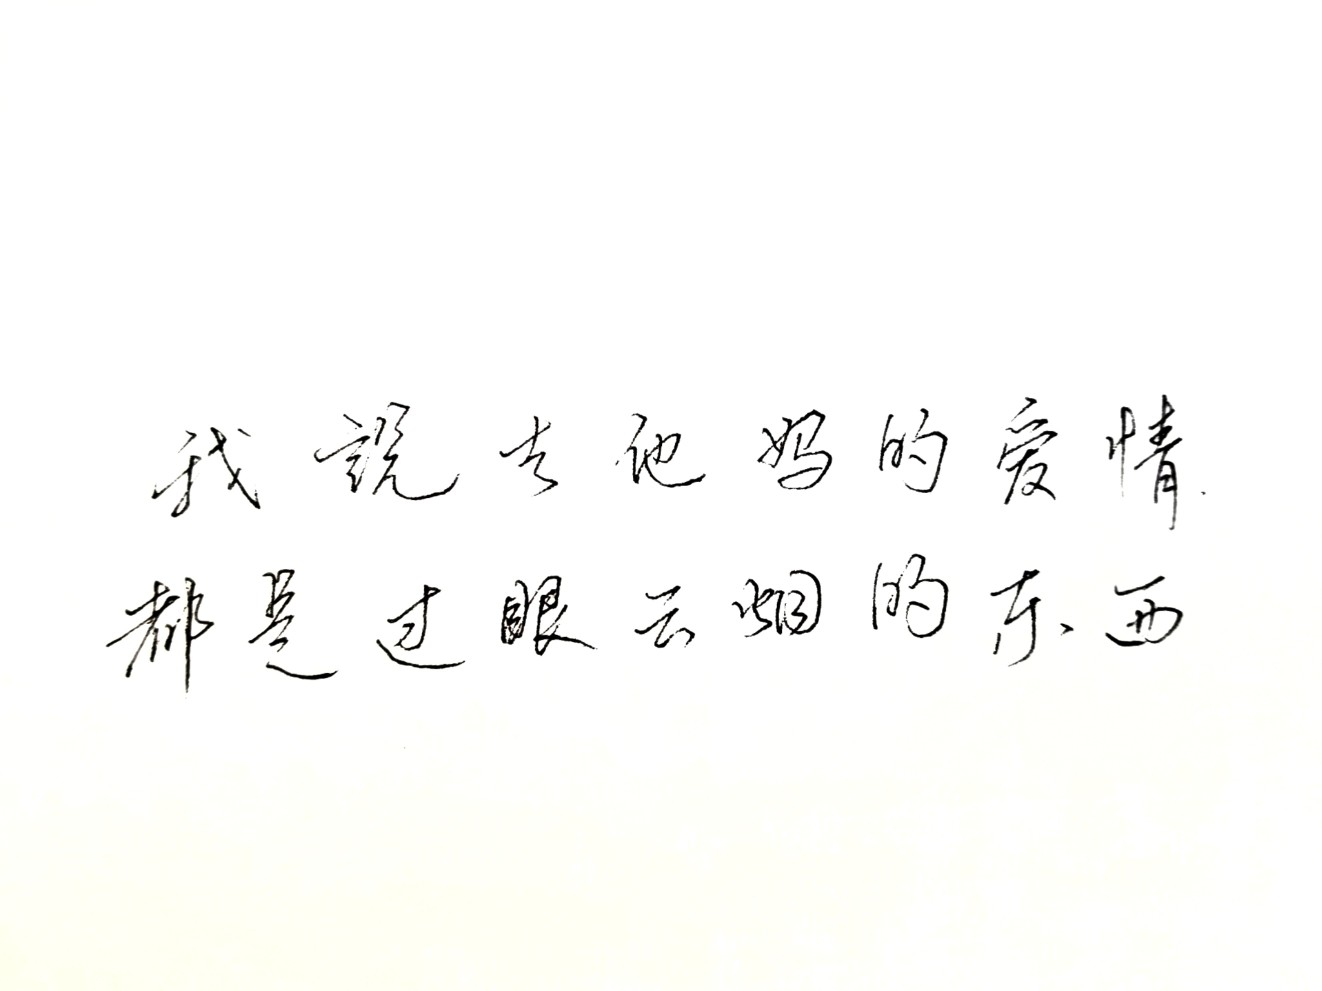 我說去他妈的爱情
都是过眼云烟的东西